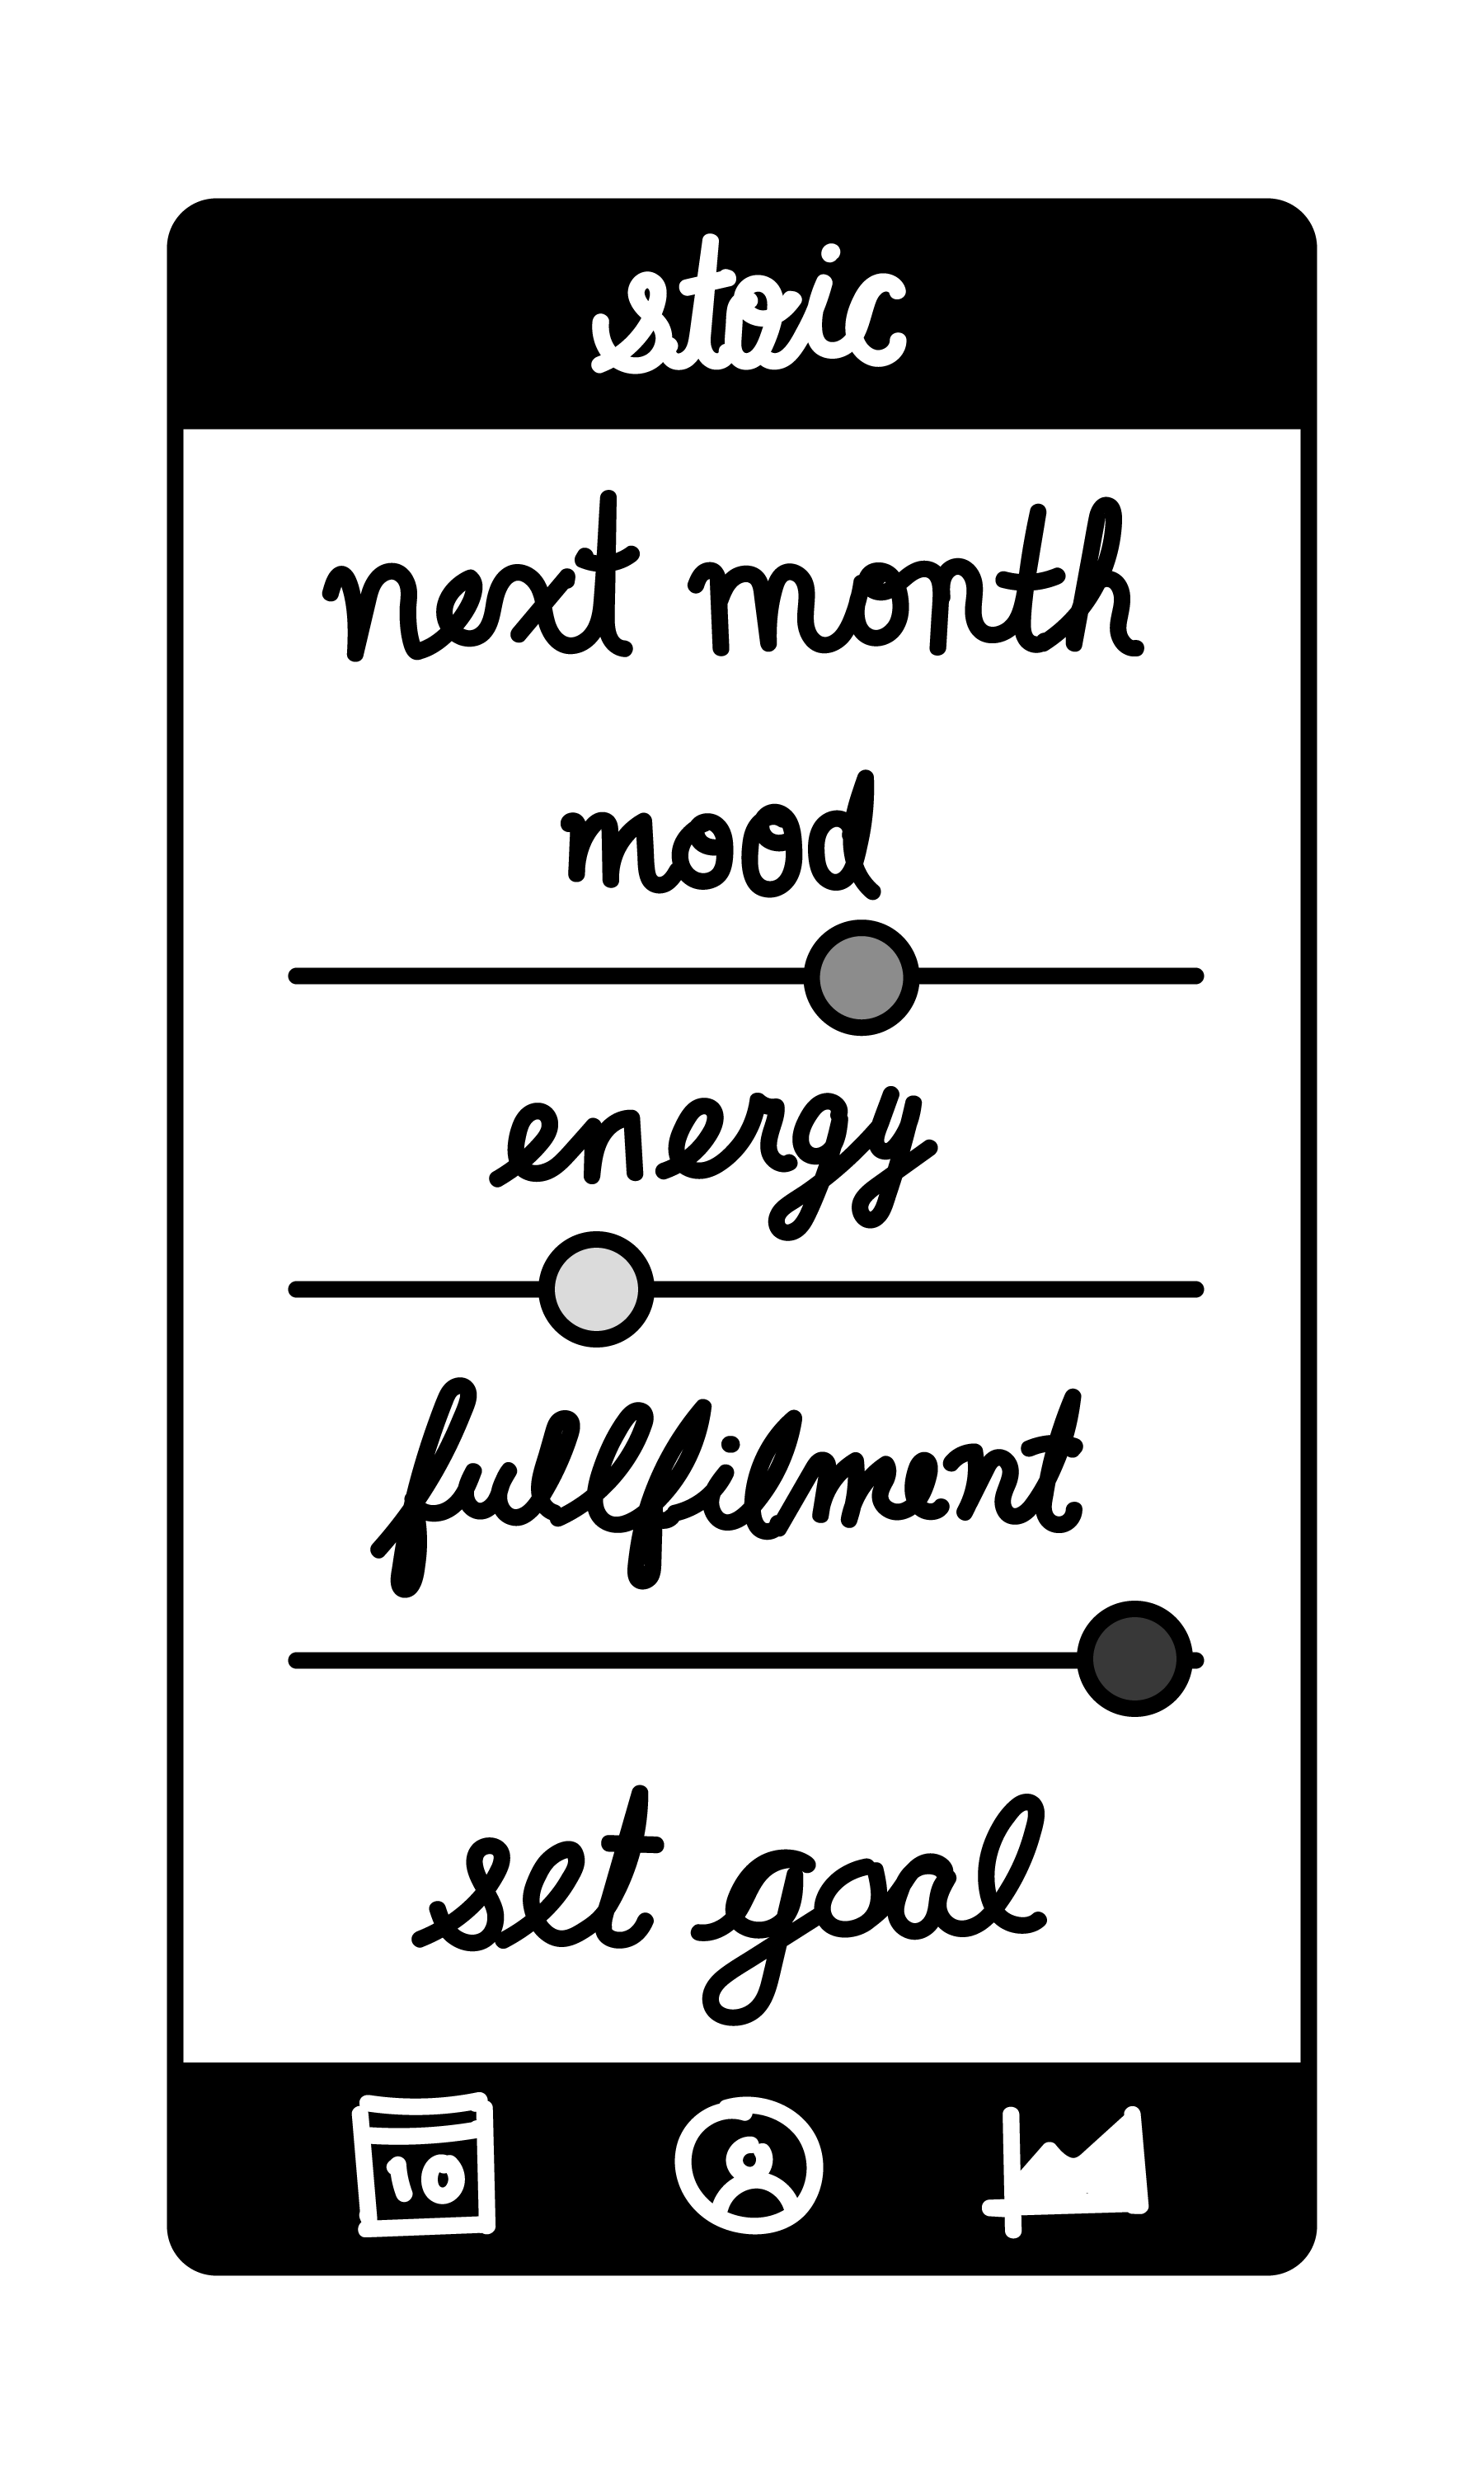 stoic
next month
mood
energy
fullfilment
set goal
10